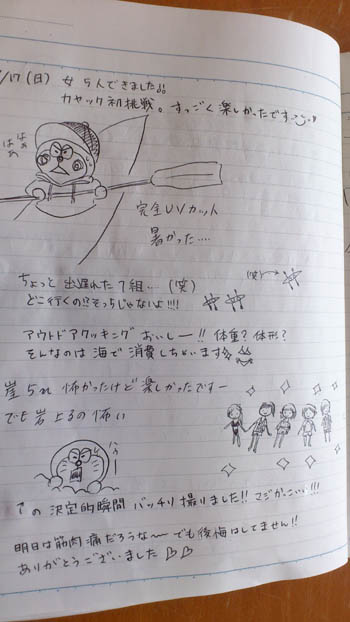 /17(日) 女5人できました!!
カヤック初挑戦。すっごく楽しかったです
はぁ
はぁ
完全UVカット
暑かった....
ちょっと出遅れた7組...(笑)
(笑)→
どこ行くの!!そっちじゃないよ!!!
アウトドアクッキングおいしー!! 体重? 体形?
そんなのは海で消費しちゃいます
怖かったけど楽しかったですー
でも岩上るの怖い
↑の決定的瞬間 バッチリ撮りました!! マジかっこいい!!!
明日は筋肉痛だろうな〜 でも後悔はしてません!!
ありがとうございました♡♡